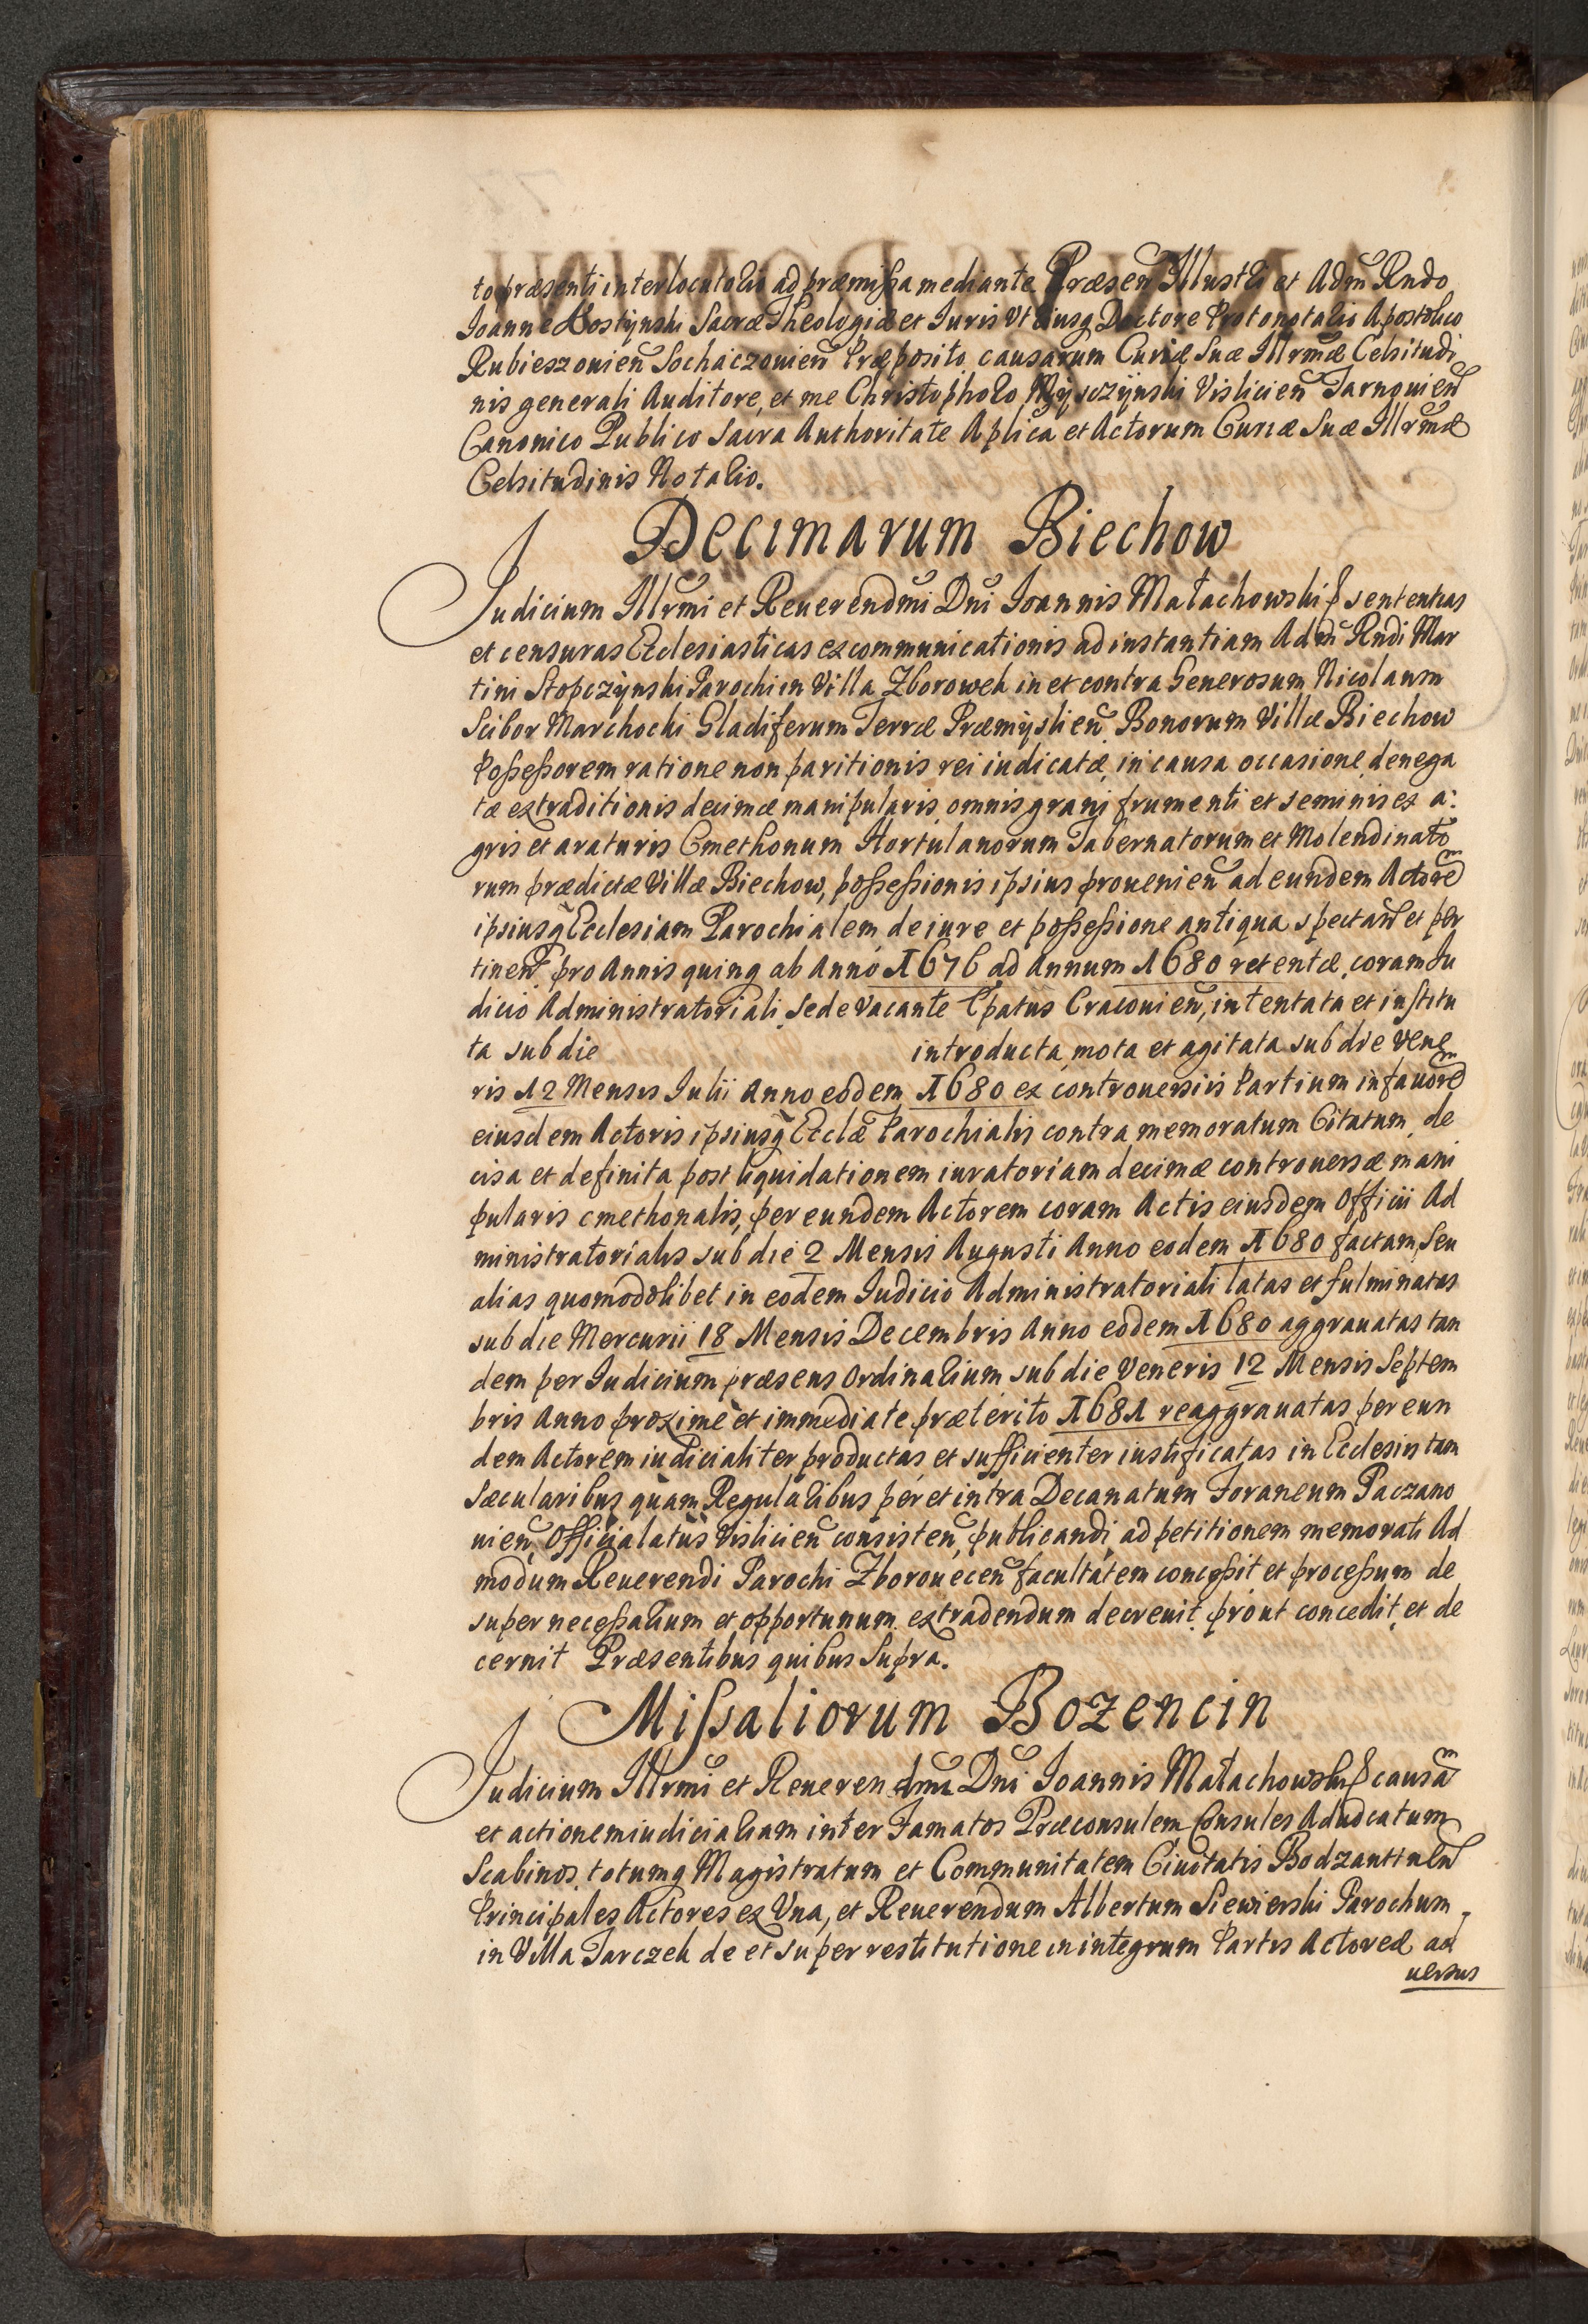 to præsenti interlocutorio ad præmissa mediante Præsen Illustri et Adm Rndo
Joanne Kostÿnski Sacræ Theologiæ et Juris Vtriusq Doctore Protonotario Apostolico
Rubieszouien Sochaczouien Præposito causarum Curiæ Suæ Illrmæ Celsitudi
nis generali Auditore, et me Christophoro Mÿsczÿnski Vislicien Tarnouien
Canonico Publico Sacra Authoritate Aplica et Actorum Curiæ Suæ Illrmæ
Celsitudinis Notario.
Decimarum Biechow
Judicium Illrmi et Reuerendmi Dni Joannis Małachowski sententias
et censuras Ecclesiasticas excommunicationis ad instantiam Adm Rndi Mar
tini Stopczÿnski Parochi in Villa Zborowek in et contra Generosum Nicolaum
Scibor Marchocki Gladiferum Terræ Præmÿslien Bonorum Villæ Biechow
Possessorem ratione non paritionis rei iudicatæ in causa occasione denega
tæ extraditionis decimæ manipularis omnis grani frumenti et seminis ex a:
gris et araturis Cmethonum Hortulanorum Tabernatorum et Molendinato
rum prædictæ Villæ Biechow, possessionis ipsius prouenien ad eundem Actore
ipsiusq Ecclesiam Parochialem de iure et possessione antiqua spectan et per
tinen pro Annis quinq ab Anno 1676 ad Annum 1680 retentæ, coram Ju
dicio Administratoriali Sede Vacante Epatus Cracouien, intentata et institu
ta sub die introducta mota et agitata sub die Vene
ris 12 Mensis Julii Anno eodem 1680 ex controuersiis Partium in fauore
eiusdem Actoris ipsiusq Ecclæ Parochialis contra memoratum Citatum de
cisa et definita post liquidationem iuratoriam decimæ controuersæ mani
pularis cmethonalis, per eundem Actorem coram Actis eiusdem Officii Ad
ministratorialis sub die 2 Mensis Augusti Anno eodem 1680 factam, Seu
alias quomodolibet in eodem Judicio Administratoriali latas et fulminatas
sub die Mercurii 18 Mensis Decembris Anno eodem 1680 aggrauatas tan
dem per Judicium præsens Ordinarium sub die Veneris 12 Mensis Septem
bris Anno proxime et immediate præterito 1681 reaggrauatas per eun
dem Actorem iudicialiter productas et sufficienter iustificatas in Ecclesiis tam
Sæcularibus quam Regularibus per et intra Decanatum Foraneum Paczano
uien, Officialatus Vislicien consisten, publicandi ad petitionem memorati Ad
modum Reuerendi Parochi Zborouecen facultatem concessit et processum de
super necessarium et opportunum extradendum decreuit prout concedit et de
cernit Præsentibus quibus Supra.
Missaliorum Bozencin
Judicium Illrmi et Reuerendmi Dni Joannis Małachowski causa
et actionem iudiciariam inter Famatos Præconsulem Consules Aduocatum
Scabinos totumq Magistratum et Communitatem Ciuitatis Bodzanttuen
Principales Actores ex Vna, et Reuerendum Albertum Siewierski Parochum
in Villa Tarczek de et super restitutione in integrum Partis Actoreæ ad
uersus